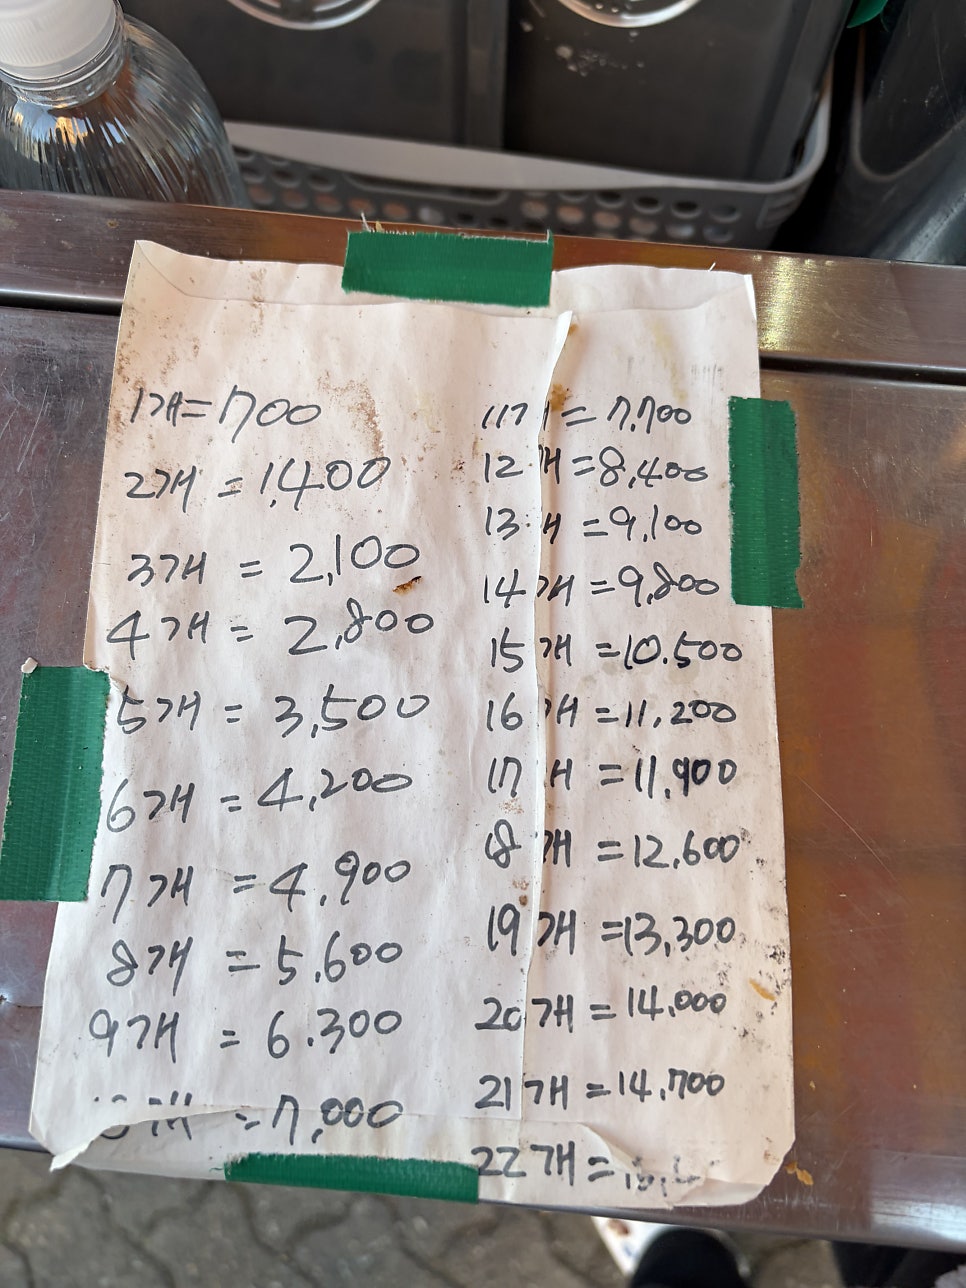 1개=700
2개=1,400
3개=2,100
4개=2,800
5개=3,500
6개=4,200
7개=4,900
8개=5,600
9개=6.300
개=7,000
11개=7,700
12개=8,400
13개=9,100
14개=9,800
15개=10.500
16개=11,200
17개=11,900
18개=12,600
19개=13,300
20개=14,000
21개=14,700
22개=